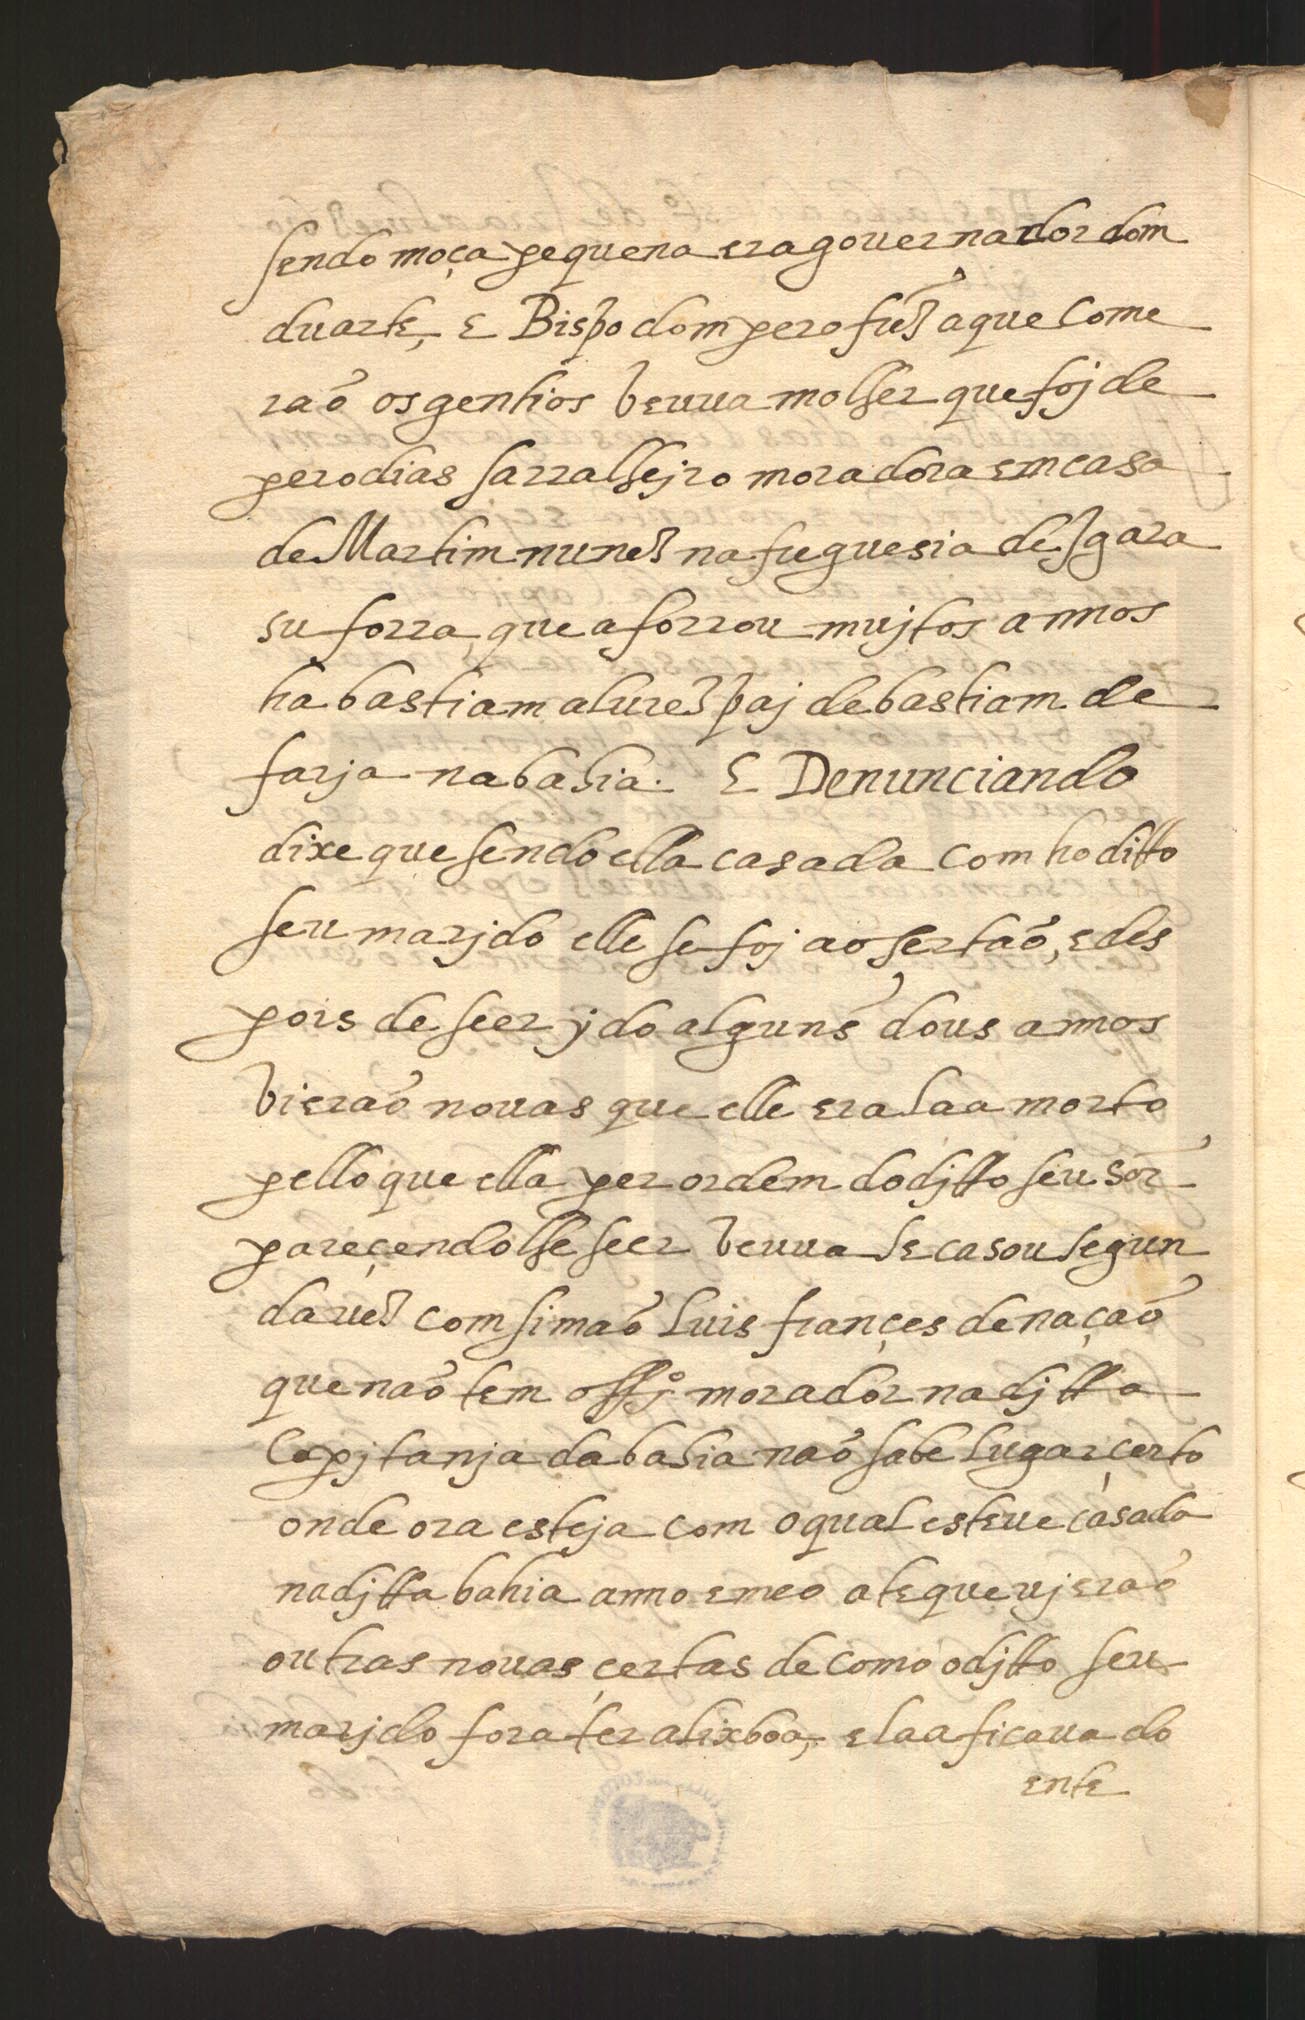 sendo moça pequena era gouernador dom
duarte, e Bispo dom pero frz̃ a que come
raõ os gentios veuua molher que foj de
pero dias sarralhejro moradora em casa
de Martim nunez na freguesia de Igara
su forra, que a forrou mujtos annos
ha bastiam alurez paj de bastiam de
farja na bahia. E Denunciando
dixe que sendo ella casada com ho ditto
seu marjdo elle se foj ao sertaõ, e des
pois de seer jdo alguns dous annos
vieraõ nouas que elle era laa morto
pello que ella per ordem do djtto seu sõr
pareçendolhe seer veuua se casou segun
da uez com simaõ luis françes de naçaõ
que naõ tem offjº morador na djtta
Capjtanja da bahia naõ sabe lugar certo
onde ora esteja com o qual esteue casada
na djtta bahia anno e meo ate que vjeraõ
outras nouas çertas de como o djtto seu
marjdo fora ter a lixboa, e laa ficaua do
ente